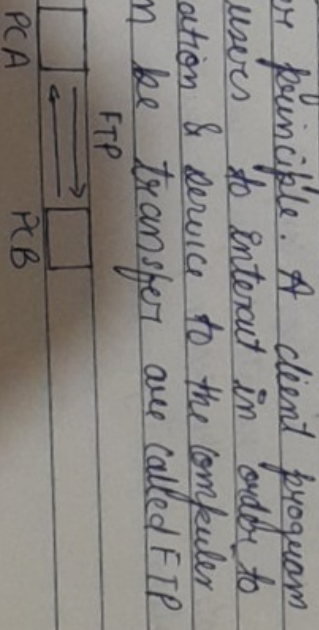 principle. A client program
users to interact in order to
ation & service to the computer
be transfer are called FTP
FTP
PCA PCB